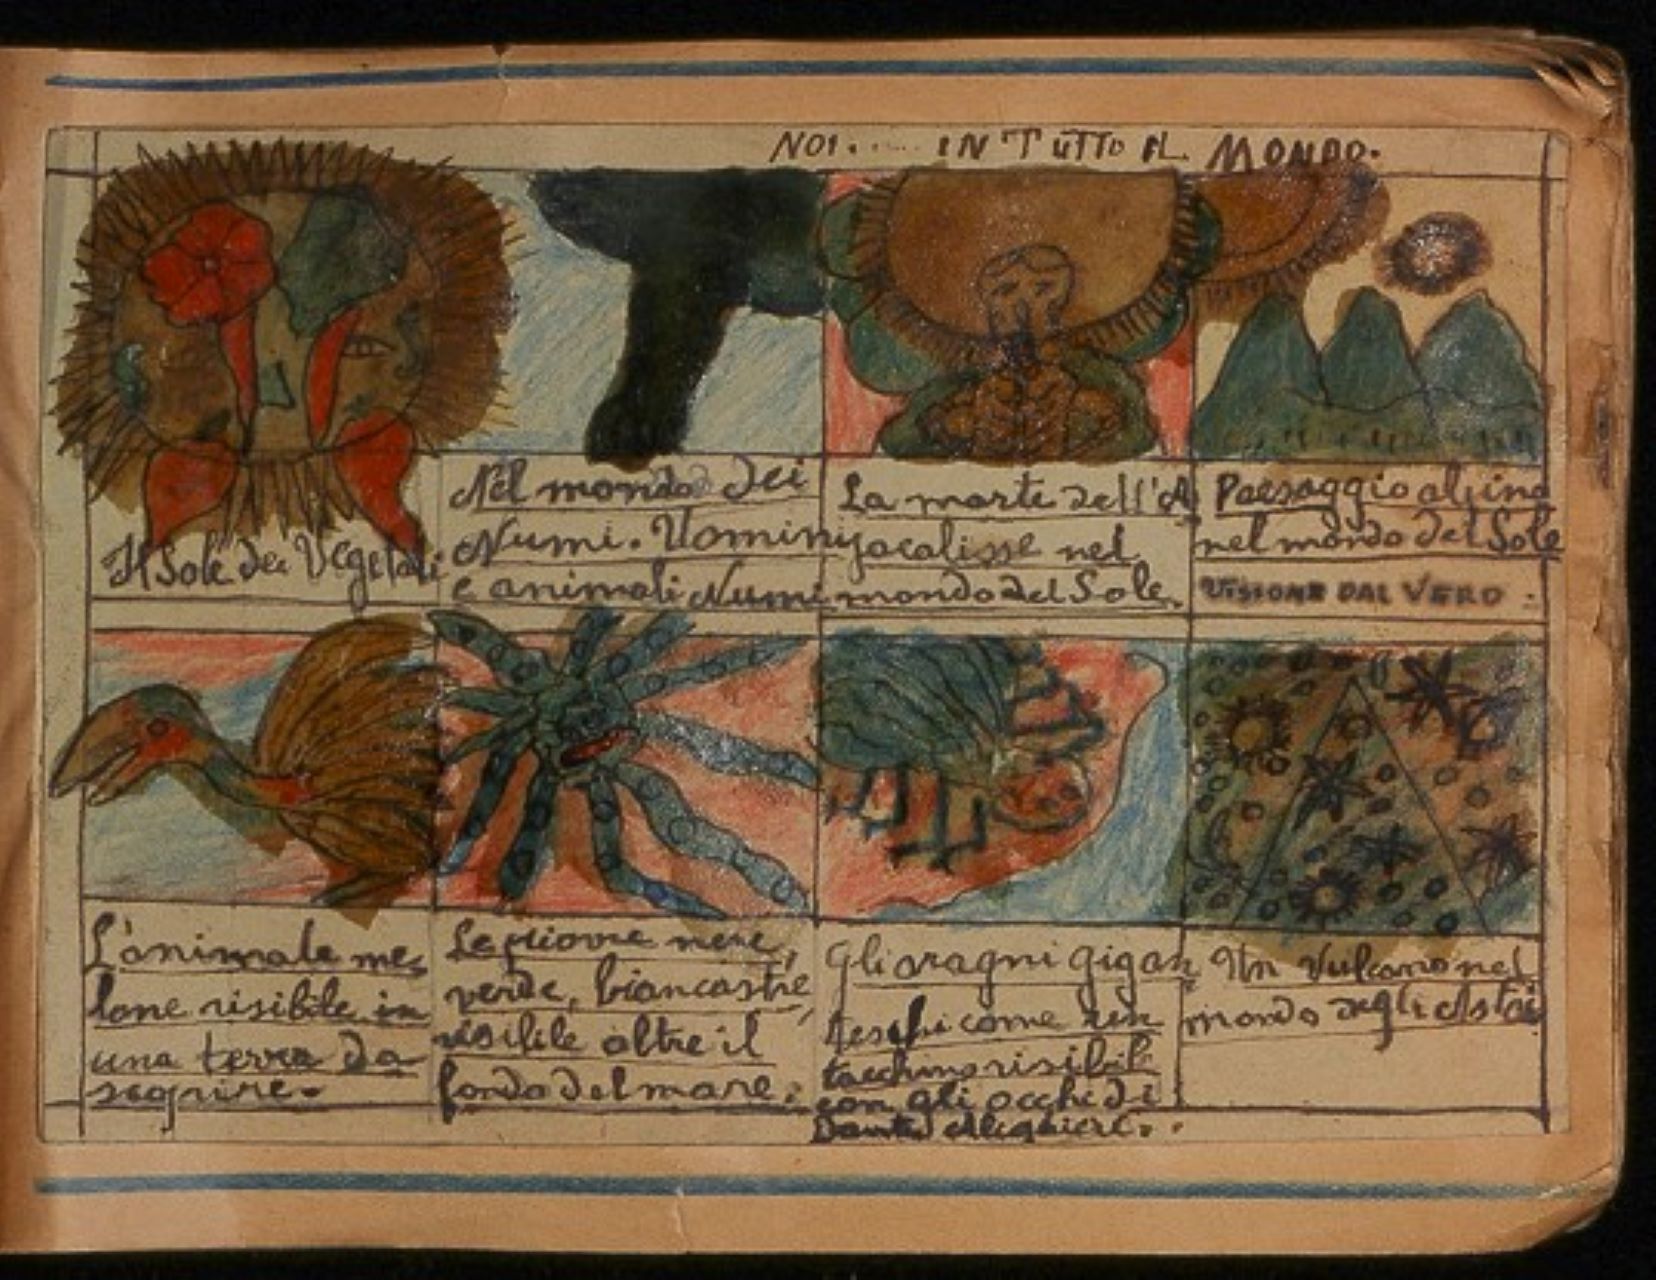 NOI..... IN TUTTO IL MONDO.
Il Sole dei Vegetali
Nel mondo dei
Numi. Uomini
e animali Numi
La morte dell'A
pocalisse nel
mondo del Sole.
Paesaggio alpino
nel mondo del Sole
VISIONE DAL VERO :
L'animale me-
lone visibile in
una terra da
scoprire.
Le piovre nere,
verde, biancastre,
visibile oltre il
fondo del mare.
Gli aragni gigan
teschi come un
tacchino visibile
con gli occhi di
Dante Alighieri..
Un Vulcano nel
mondo degli Astri